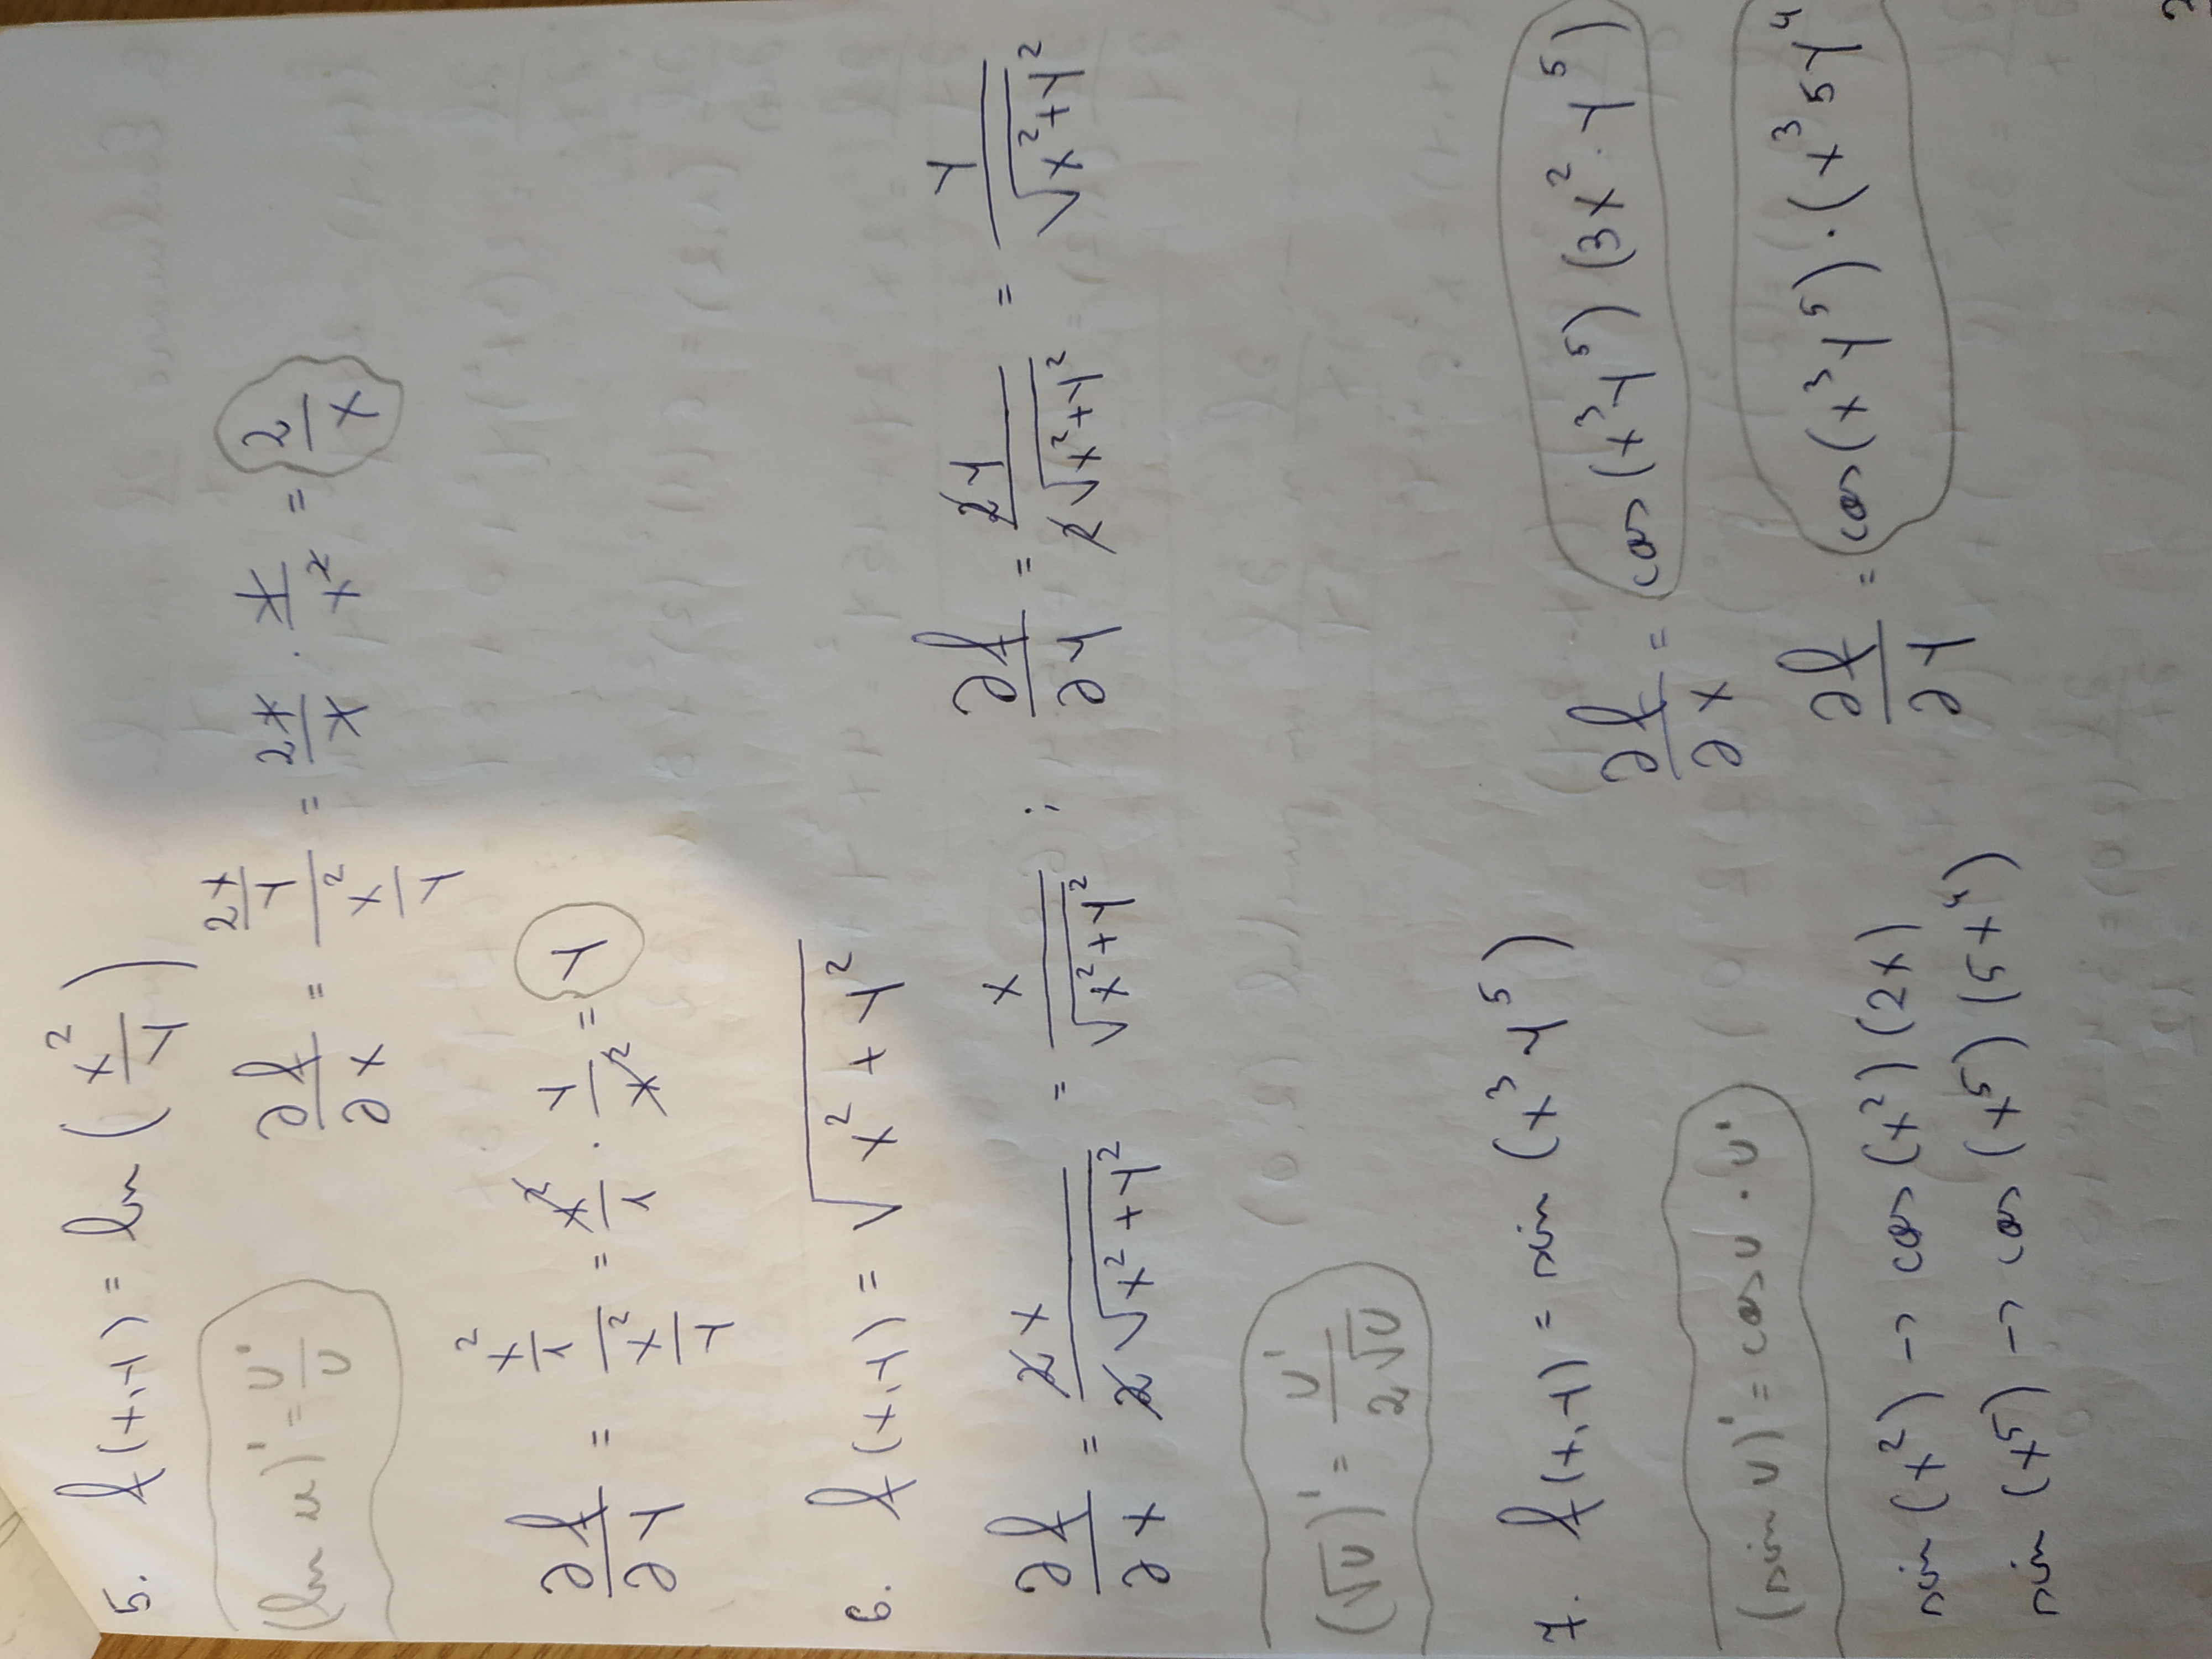 5. f(x,y) = ln (x²/y)
(ln u)' = u'/u
∂f/∂x = (2x/y)/(x²/y) = 2x/y · y/x² = 2/x
∂f/∂y = (x²/1)/(x²/y) = x²/1 · y/x² = y
6. f(x,y) = √(x² + y²)
∂f/∂x = 2x/(2√(x²+y²)) = x/√(x²+y²) ; ∂f/∂y = 2y/(2√(x²+y²)) = y/√(x²+y²)
(√u)' = u'/(2√u)
7. f(x,y) = sin (x³ y⁵)
∂f/∂x = cos(x³y⁵) (3x² · y⁵)
(sin u)' = cos u · u'
∂f/∂y = cos(x³y⁵) · (x³ 5y⁴
sin (x²) → cos (x²) (2x)
sin (x⁵) → cos (x⁵) (5x⁴)